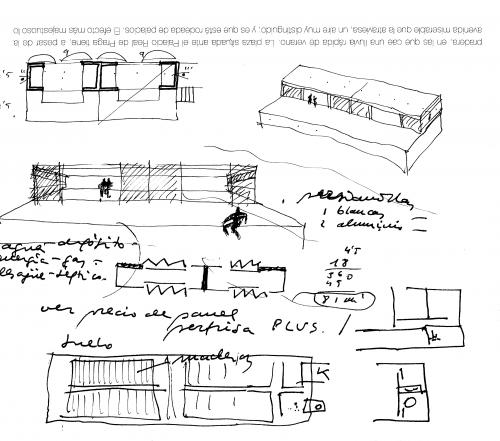 pradera, en las que cae una lluvia rápida de verano. La plaza situada ante el Palacio Real de Praga tiene, a pesar de la
avenida miserable que la atraviesa, un aire muy distinguido, y es que está rodeada de palacios. El efecto más majestuoso lo
1 blancas
2
4'5
18
360
45
81 m²
agua-depósito-
energia-gas-
ver precio de panel
perfrisa PLUS.
suelo